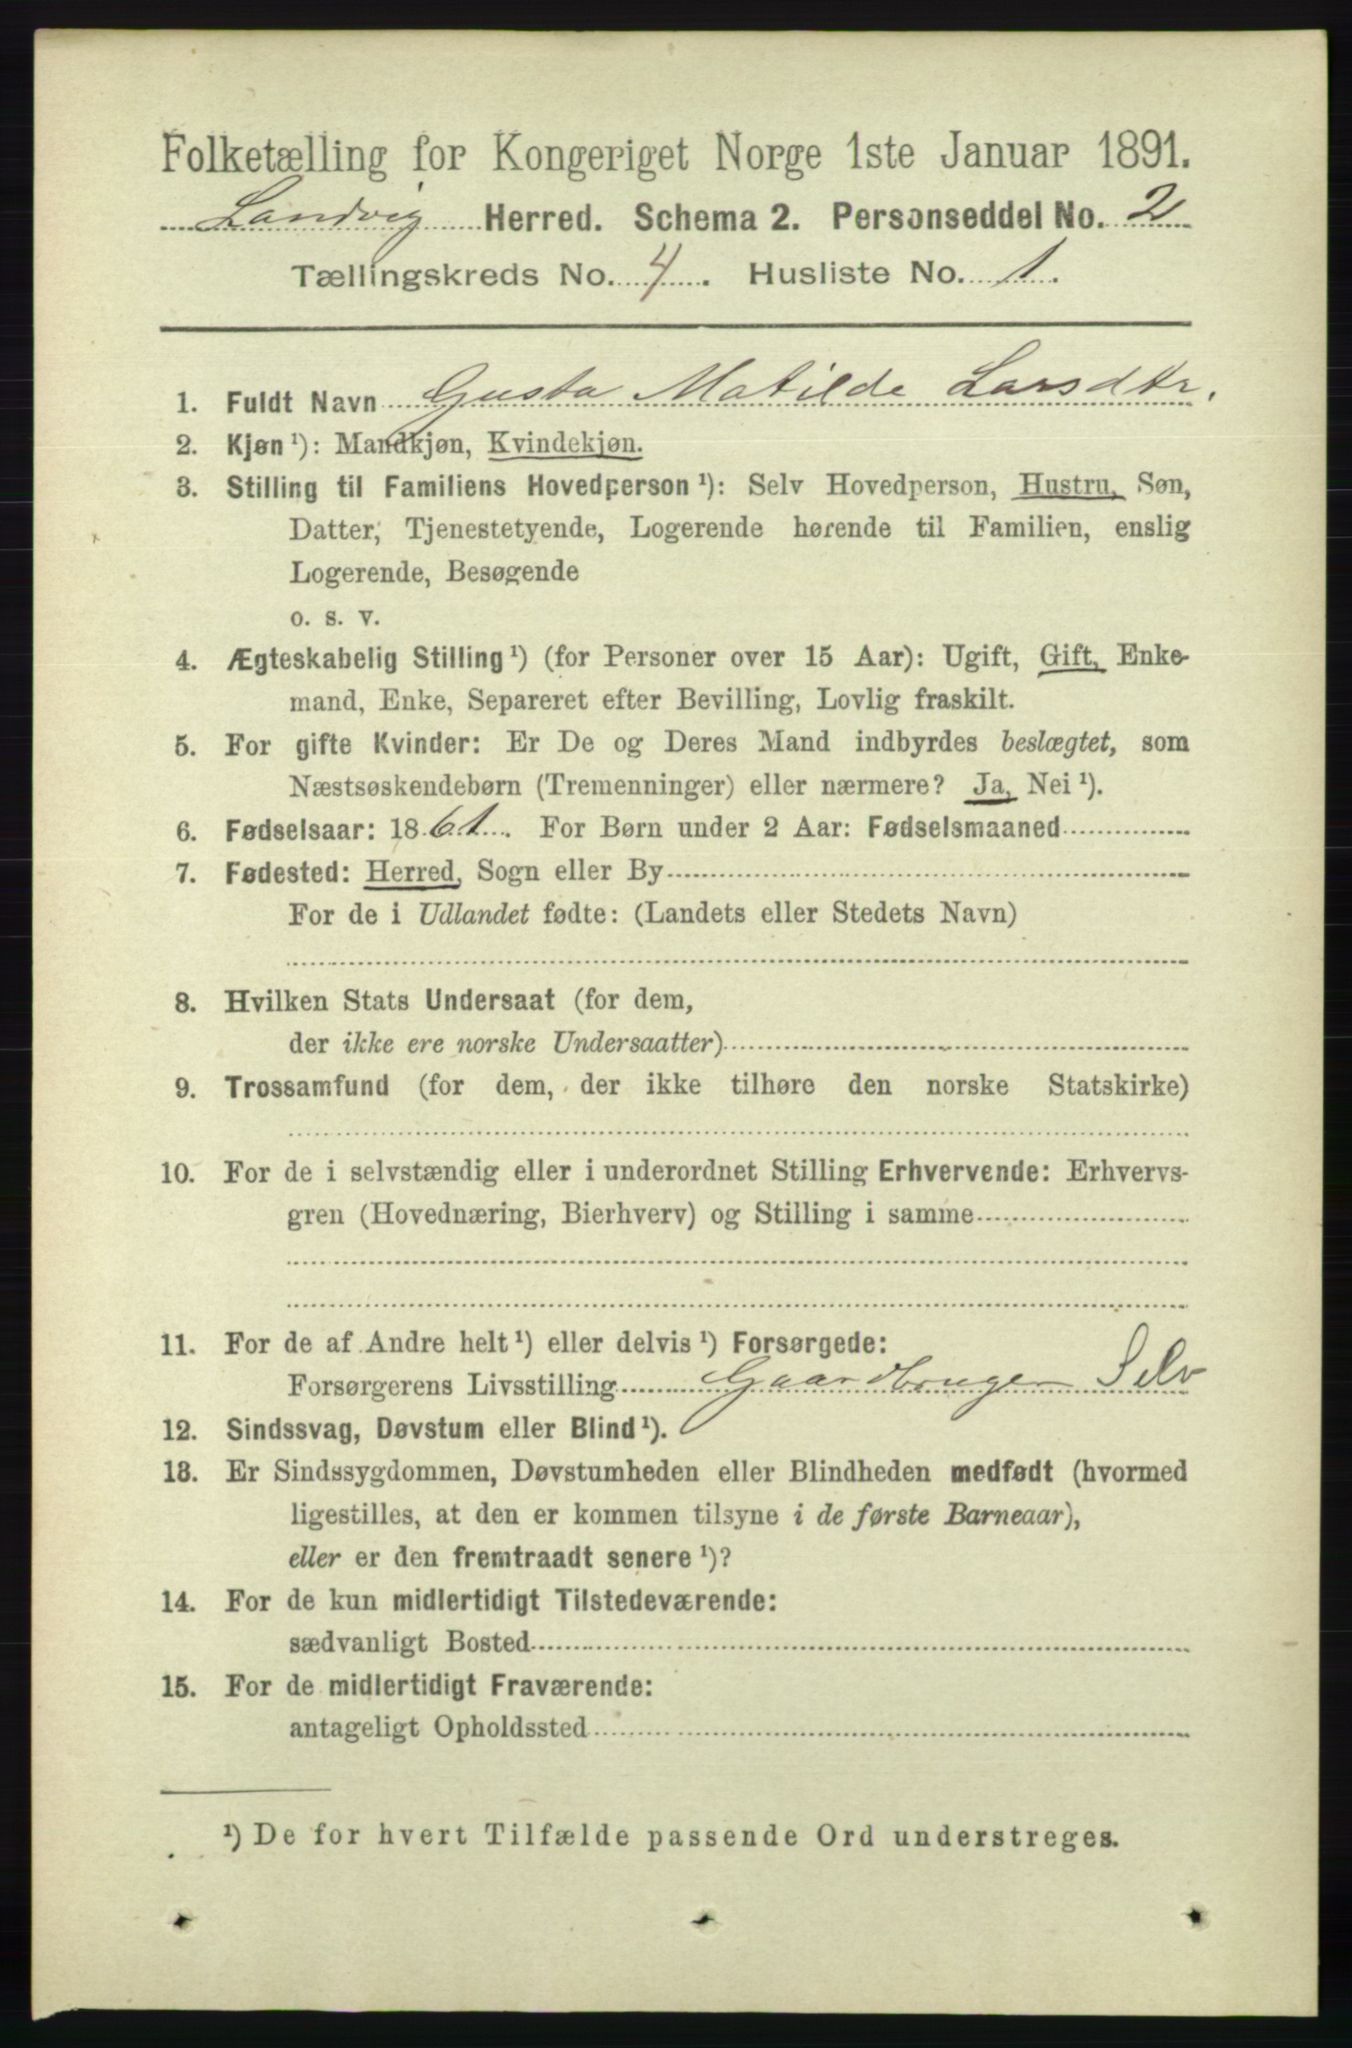 Folketælling for Kongeriget Norge 1ste Januar 1891.
Landvig Herred. Schema 2. Personseddel No. 2
Tællingskreds No. 4. Husliste No. 1.
1. Fuldt Navn Gusta Matilde Larsdtr.
2. Kjøn ¹): Mandkjøn, Kvindekjøn.
3. Stilling til Familiens Hovedperson ¹): Selv Hovedperson, Hustru, Søn,
Datter, Tjenestetyende, Logerende hørende til Familien, enslig
Logerende, Besøgende
o. s. v.
4. Ægteskabelig Stilling ¹) (for Personer over 15 Aar): Ugift, Gift, Enke-
mand, Enke, Separeret efter Bevilling, Lovlig fraskilt.
5. For gifte Kvinder: Er De og Deres Mand indbyrdes beslægtet, som
Næstsøskendebørn (Tremenninger) eller nærmere? Ja, Nei ¹).
6. Fødselsaar: 1861. For Børn under 2 Aar: Fødselsmaaned
7. Fødested: Herred, Sogn eller By
For de i Udlandet fødte: (Landets eller Stedets Navn)
8. Hvilken Stats Undersaat (for dem,
der ikke ere norske Undersaatter)
9. Trossamfund (for dem, der ikke tilhøre den norske Statskirke)
10. For de i selvstændig eller i underordnet Stilling Erhvervende: Erhvervs-
gren (Hovednæring, Bierhverv) og Stilling i samme
11. For de af Andre helt ¹) eller delvis ¹) Forsørgede:
Forsørgerens Livsstilling Gaardbruger Selv
12. Sindssvag, Døvstum eller Blind ¹).
13. Er Sindssygdommen, Døvstumheden eller Blindheden medfødt (hvormed
ligestilles, at den er kommen tilsyne i de første Barneaar),
eller er den fremtraadt senere ¹)?
14. For de kun midlertidigt Tilstedeværende:
sædvanligt Bosted
15. For de midlertidigt Fraværende:
antageligt Opholdssted
¹) De for hvert Tilfælde passende Ord understreges.